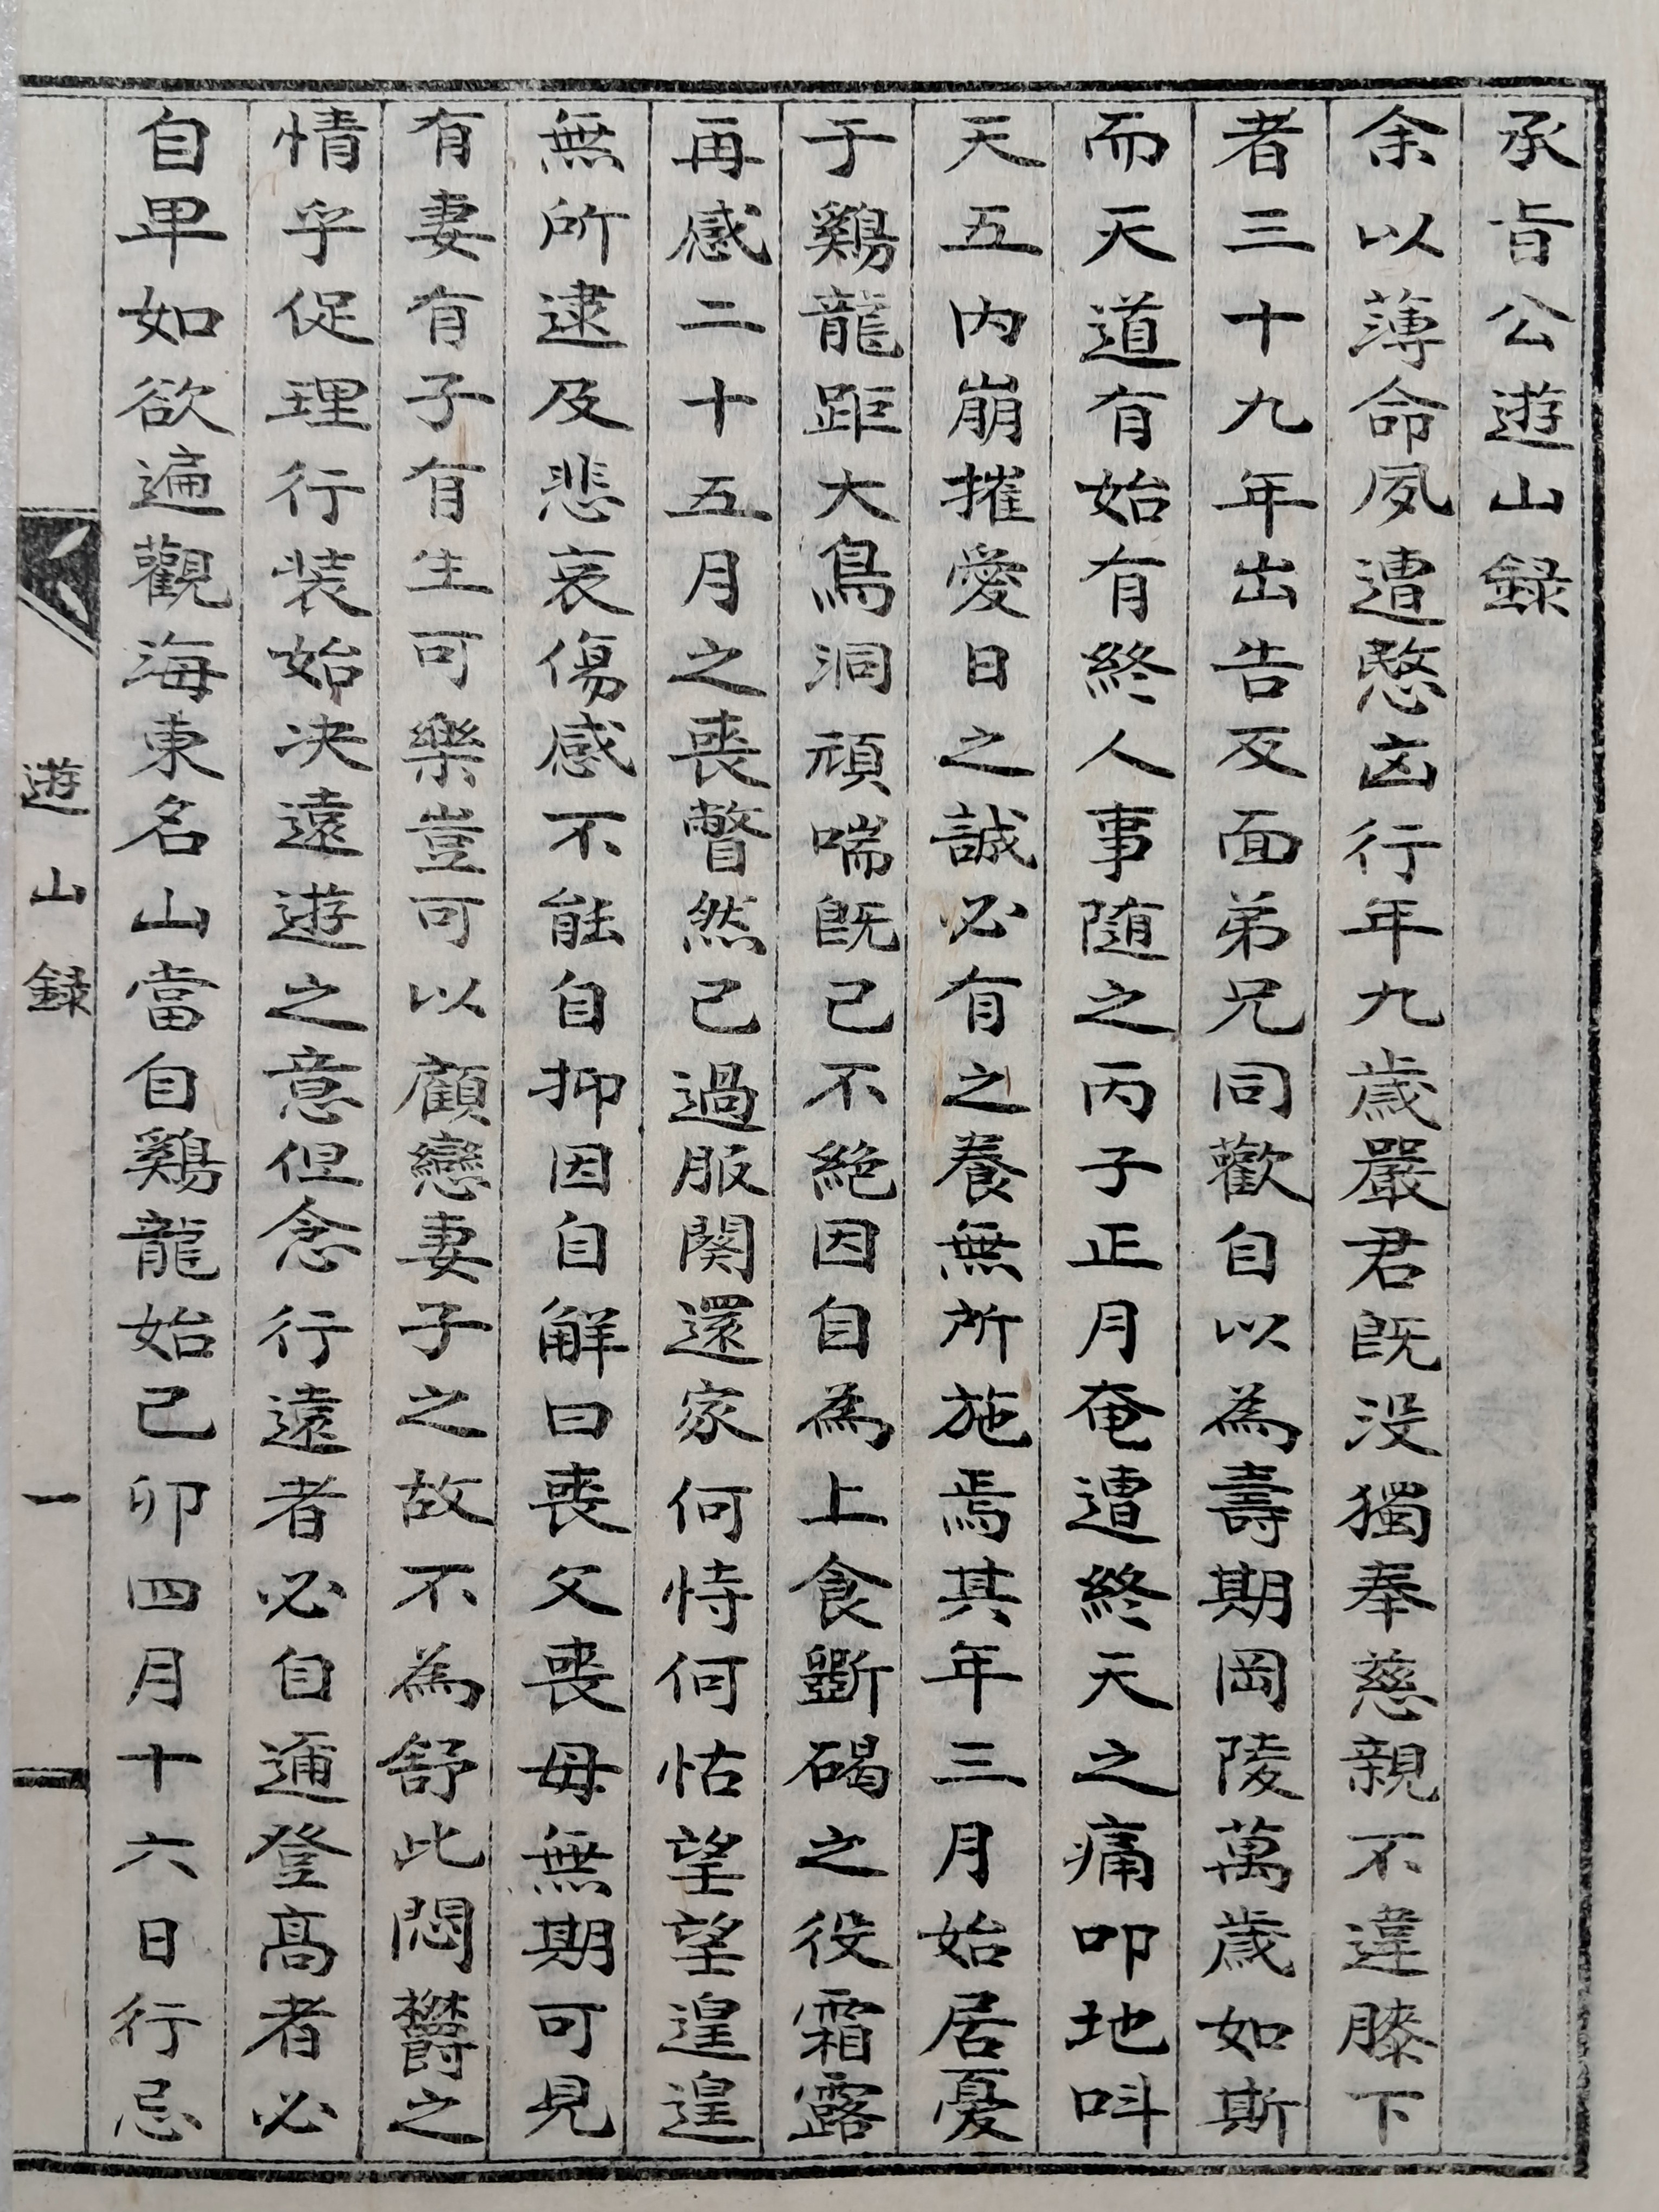 承旨公遊山録
余以薄命夙遭愍凶行年九歲嚴君旣没獨奉慈親不違膝下
者三十九年出告反面弟兄同歡自以為壽期岡陵萬歲如斯
而天道有始有終人事随之丙子正月奄遭終天之痛叩地呌
天五內崩摧愛日之誠必有之養無所施焉其年三月始居憂
于鷄龍距大鳥洞頑喘旣已不絕因自為上食斲碣之役霜露
再感二十五月之喪瞥然已過服闋還家何恃何怙望望遑遑
無所逮及悲哀傷感不能自抑因自解曰喪父喪母無期可見
有妻有子有生可樂豈可以顧戀妻子之故不為舒此悶欝之
情乎促理行装始决遠遊之意但念行遠者必自邇登髙者必
自卑如欲遍觀海東名山當自鷄龍始己卯四月十六日行忌
遊山録
一